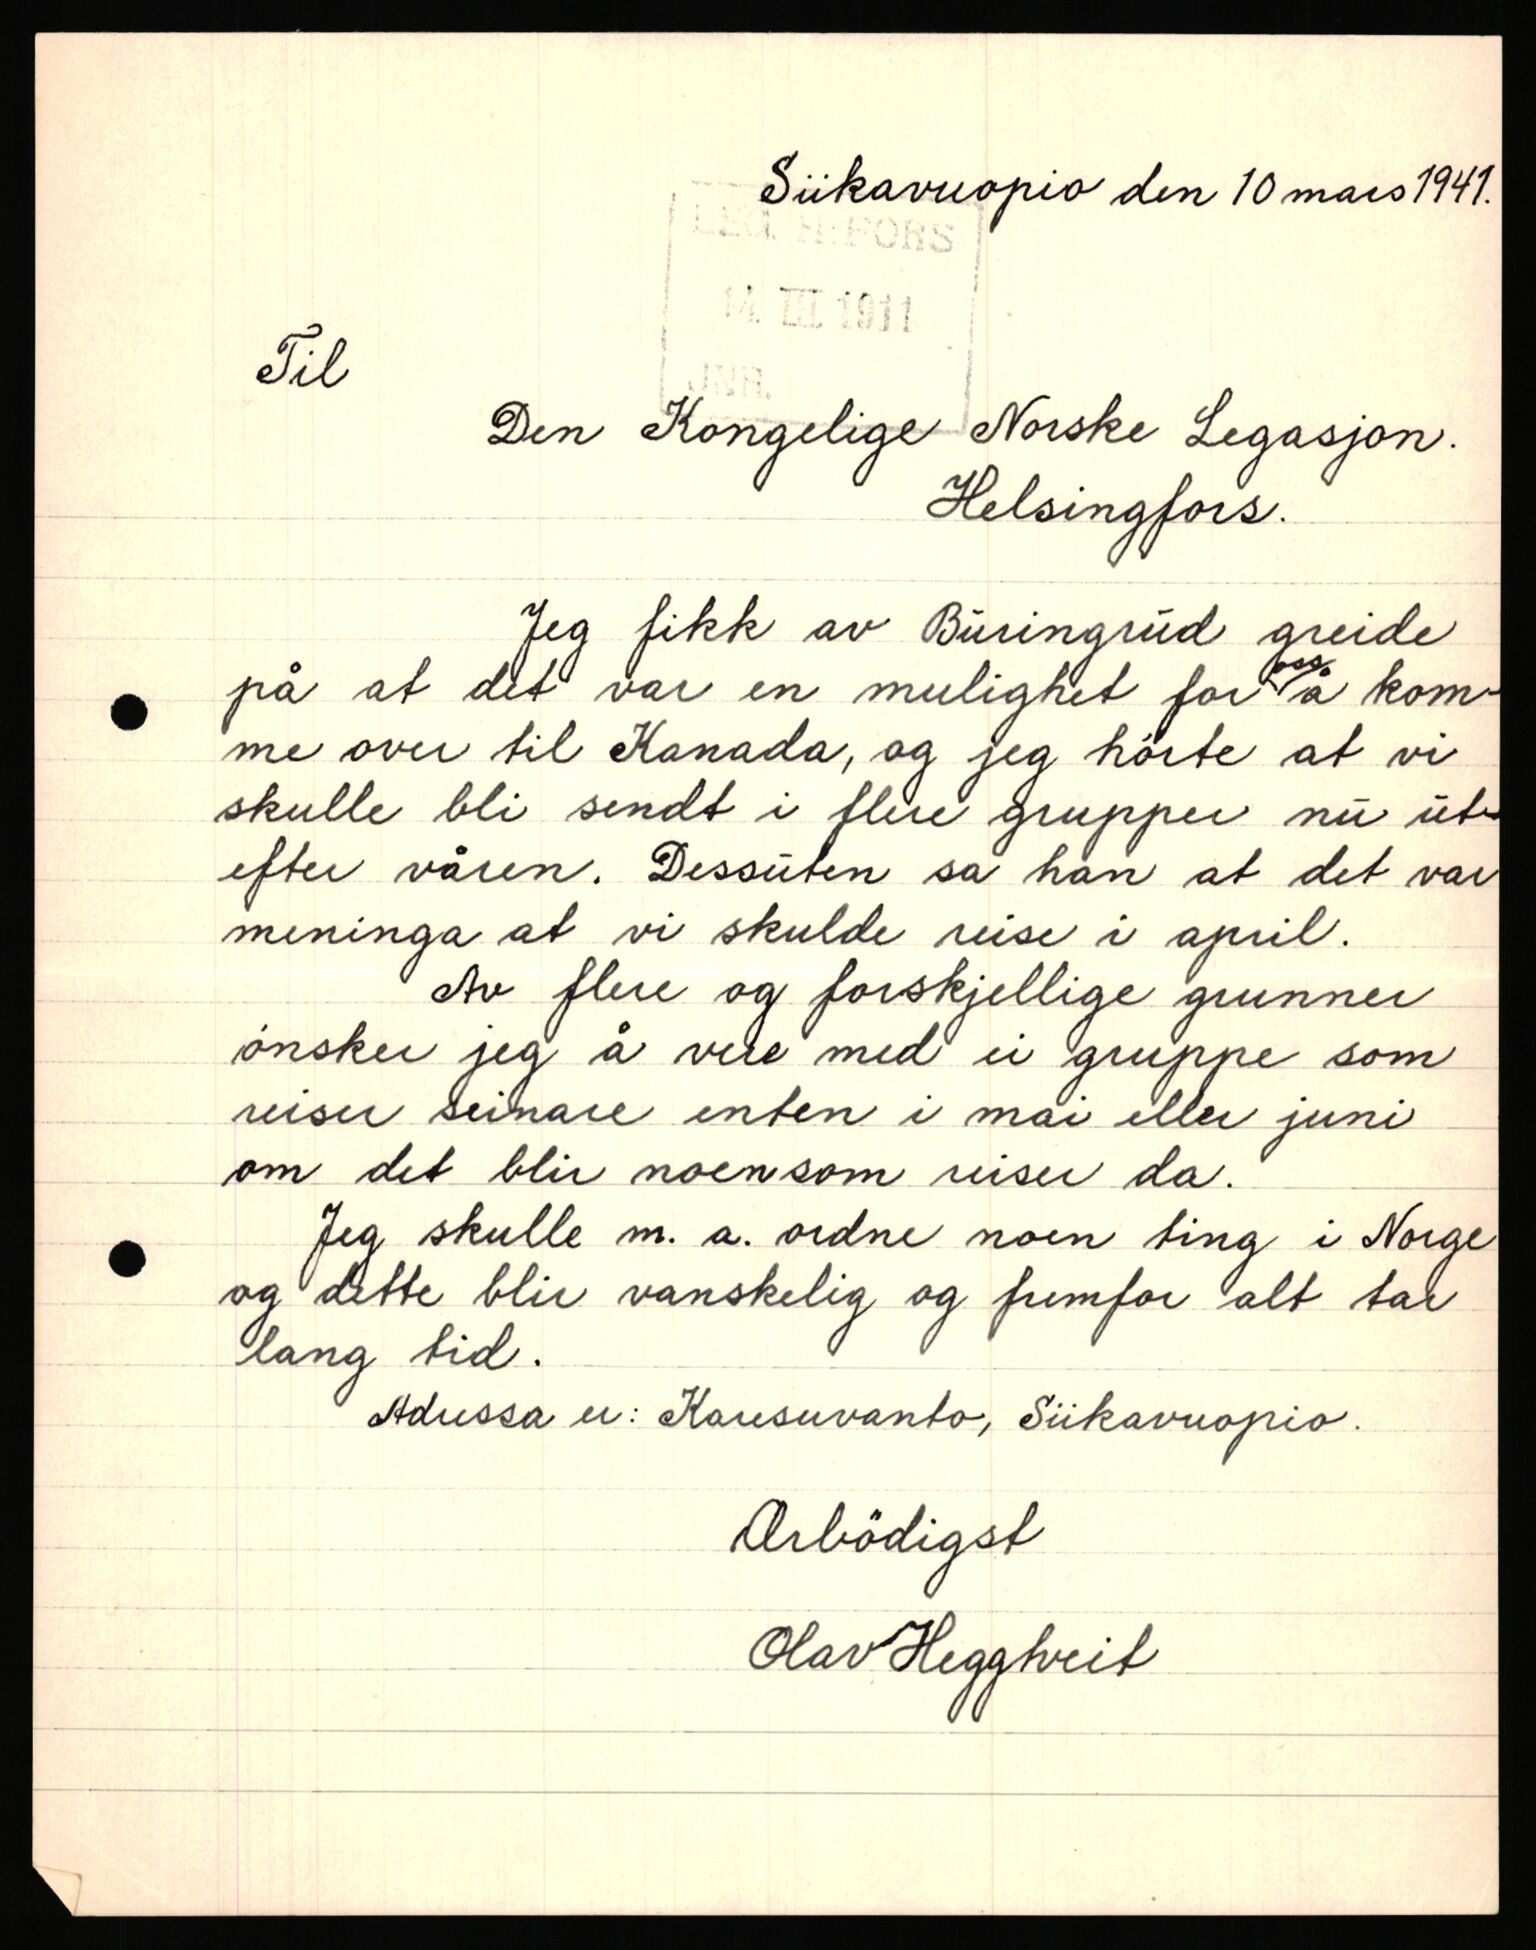 Siikavuopio den 10 mars 1941.
LEG. H:FORS
14. III. 1911
JNR.
Til
Den Kongelige Norske Legasjon.
Helsingfors.
Jeg fikk av Būringrūd greide
på at det var en mulighet for oss å kom-
me over til Kanada, og jeg hörte at vi
skulle bli sendt i flere grupper nū ūt-
efter våren. Dessūten sa han at det var
meninga at vi skulde reise i april.
Av flere og forskjellige grunner
önsker jeg å vere med ei gruppe som
reiser seinare enten i mai eller juni
om det blir noen som reiser da.
Jeg skulle m. a. ordne noen ting i Norge
og dette blir vanskelig og fremfor alt tar
lang tid.
Adressa er: Karesuvanto, Siikavuopio.
Ærbödigst
Olav Heggtveit